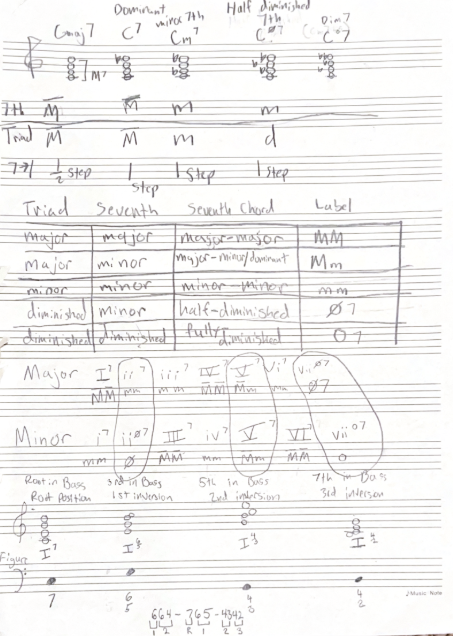 Dominant minor 7th Half diminished 7th Dim7
Cmaj7 C7 Cm7 CØ7 C°7
]M7
7th M M m m
Triad M M m d
7→1 1/2 step 1 step 1 step 1 step
Triad Seventh Seventh Chord Label
major major major-major MM
major minor major-minor/dominant Mm
minor minor minor-minor mm
diminished minor half-diminished Ø7
diminished diminished fully diminished O7
Major I7 ii7 iii7 IV7 V7 vi7 viiØ7
MM mm mm MM Mm mm Ø7
Minor i7 iiØ7 III7 iv7 V7 VI7 vii°7
mm Ø MM mm Mm MM o
Root in Bass 3rd in Bass 5th in Bass 7th in Bass
Root Position 1st inversion 2nd inversion 3rd inverson
I7 I I4/3 I4/2
Figure
7 6/5 4/3 4/2
♪Music Note
664-765-4342
1 2 R 1 2 3